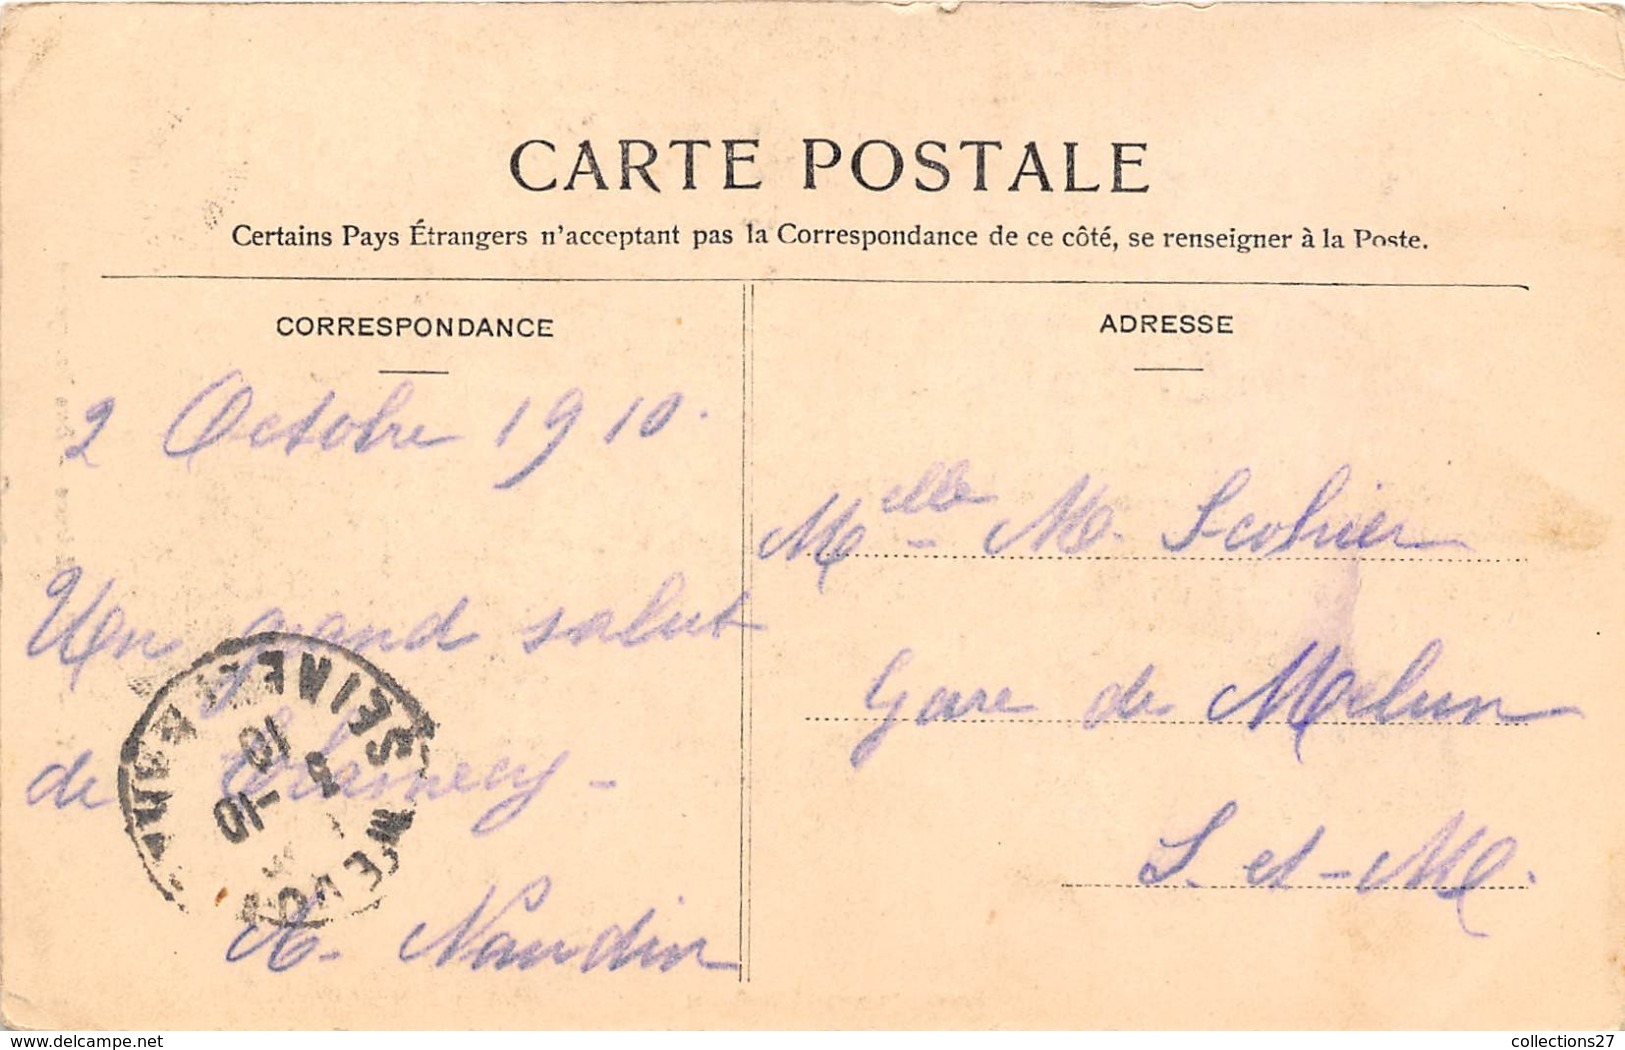 CARTE POSTALE
Certains Pays Étrangers n'acceptant pas la Correspondance de ce côté, se renseigner à la Poste.
CORRESPONDANCE
2 Octobre 1910.
Un grand salut
de Clamecy -
Naudin
ADRESSE
Melle - M. Scohier
Gare de Melun
S. et - M.
SEINE ET MARNE
www.delcampe.net
collections27